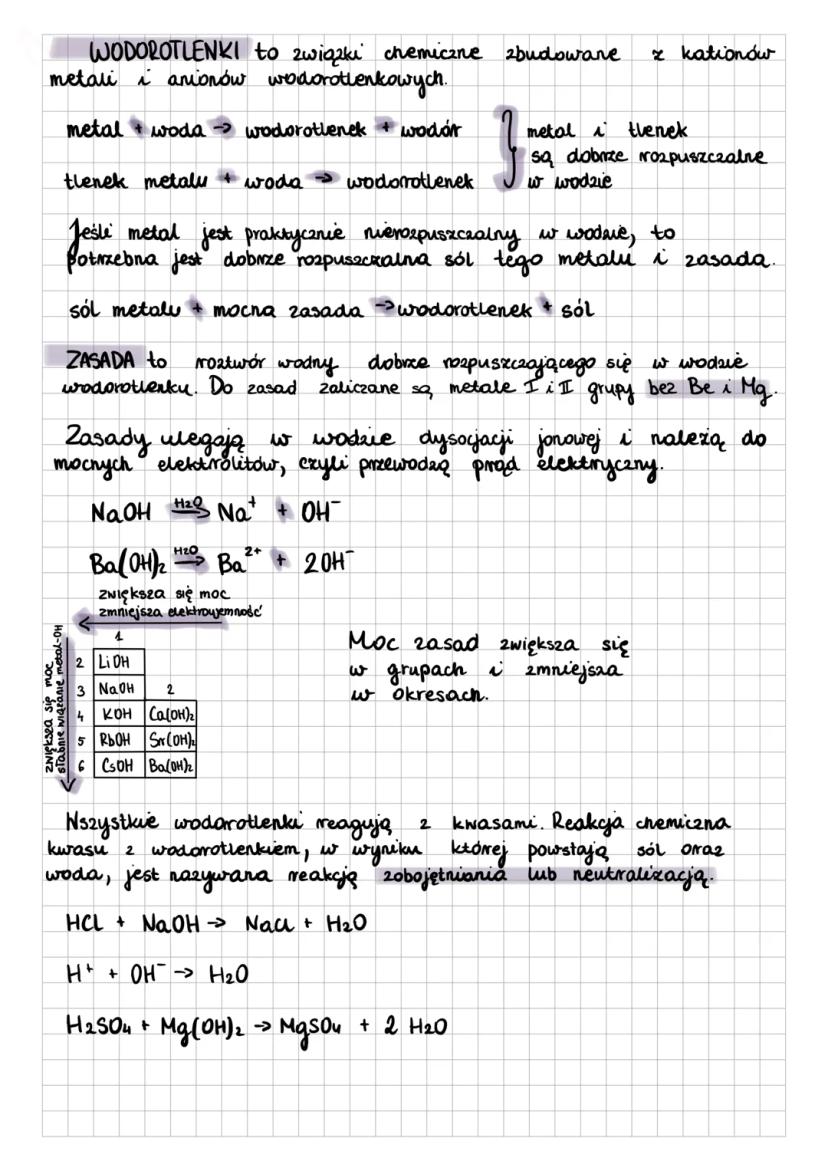 WODOROTLENKI to związki chemiczne zbudowane z kationów
metali i anionów wodorotlenkowych.
metal + woda → wodorotlenek + wodór
metal i tlenek
są dobrze rozpuszczalne
w wodzie
tlenek metalu + woda → wodorotlenek
Jeśli metal jest praktycznie nierozpuszczalny w wodzie, to
potrzebna jest dobrze rozpuszczalna sól tego metalu i zasada.
sól metalu + mocna zasada → wodorotlenek + sól
ZASADA to roztwór wodny dobrze rozpuszczającego się w wodzie
wodorotlenku. Do zasad zaliczane są metale I i II grupy bez Be i Mg.
Zasady ulegają w wodzie dysocjacji jonowej i należą do
mocnych elektrolitów, czyli przewodzą prąd elektryczny.
NaOH H2O→ Na⁺ + OH⁻
Ba(OH)₂ H2O→ Ba²⁺ + 2OH⁻
zwiększa się moc
zmniejsza elektroujemność
zwiększa się moc
słabnie wiązanie metal-OH
1
2 LiOH
3 NaOH 2
4 KOH Ca(OH)₂
5 RbOH Sr(OH)₂
6 CsOH Ba(OH)₂
Moc zasad zwiększa się
w grupach i zmniejsza
w okresach.
Wszystkie wodorotlenki reagują z kwasami. Reakcja chemiczna
kwasu z wodorotlenkiem, w wyniku której powstają sól oraz
woda, jest nazywana reakcją zobojętniania lub neutralizacją.
HCl + NaOH → NaCl + H₂O
H⁺ + OH⁻ → H₂O
H₂SO₄ + Mg(OH)₂ → MgSO₄ + 2 H₂O